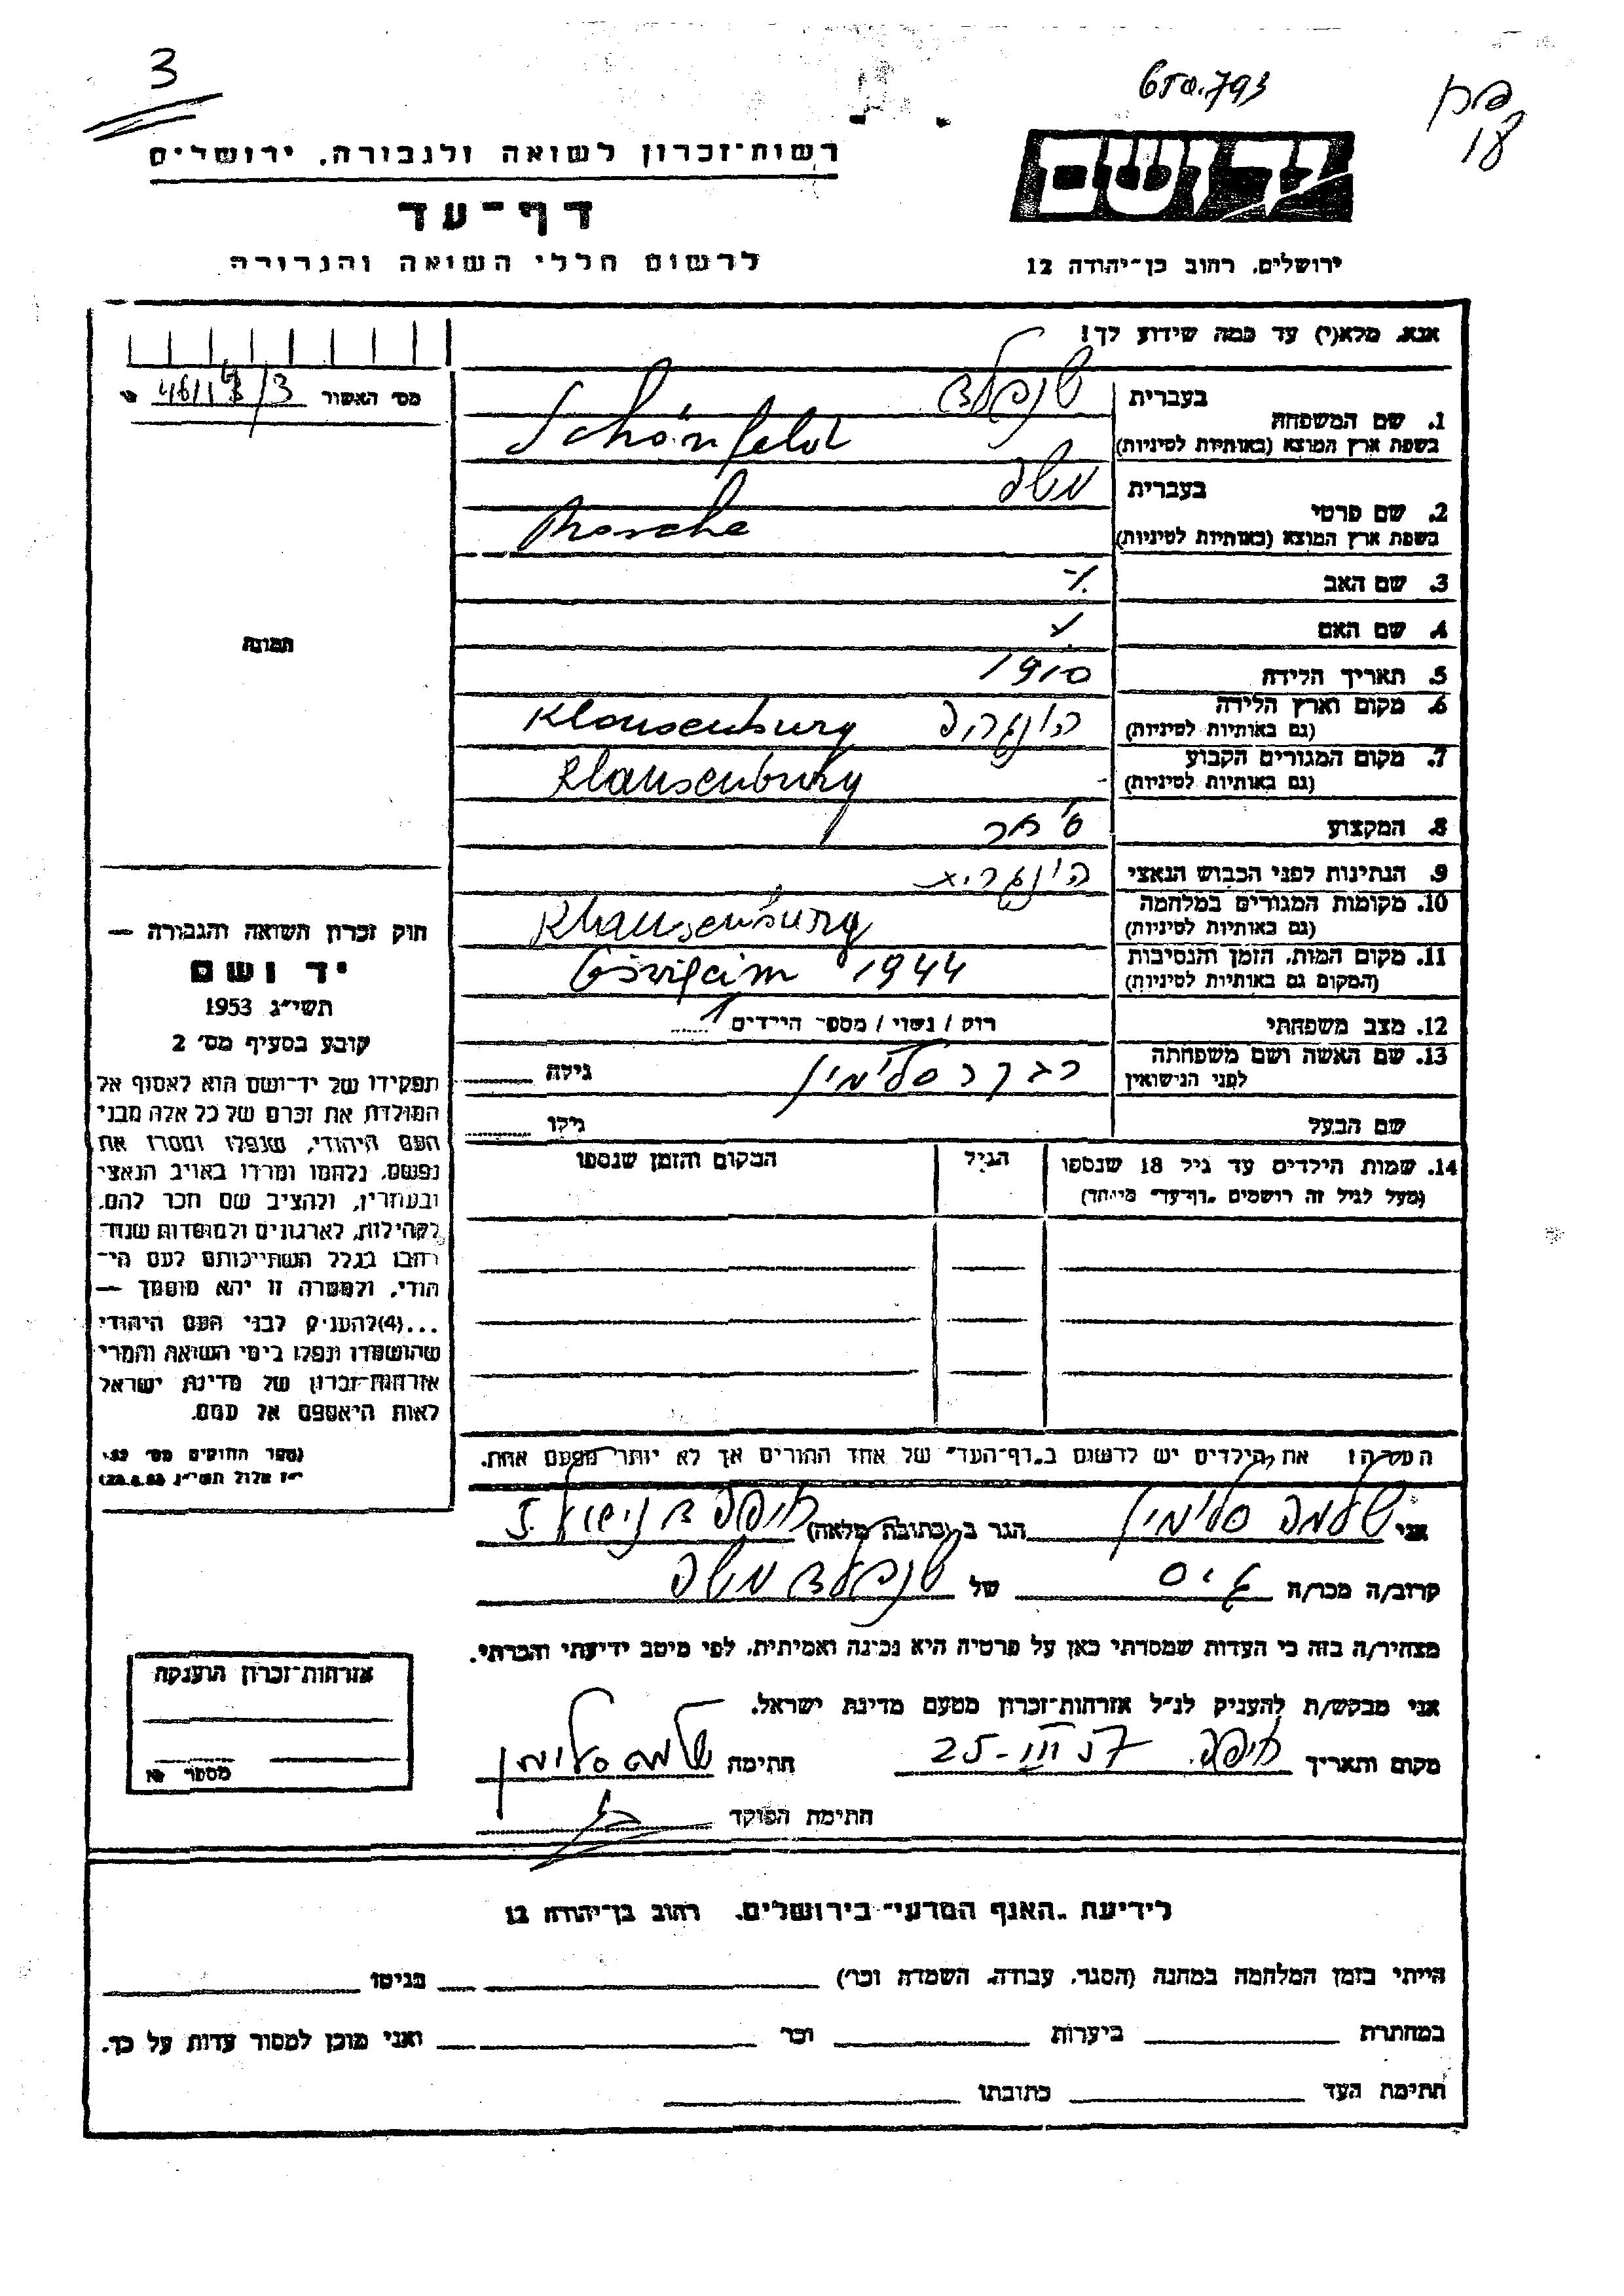 3
פח
17
רשות־זכרון לשואה ולגבורה, ירושלים
יד ושם
דף־עד
לרשום חללי השואה והגבורה
ירושלים, רחוב בן־יהודה 12
אנא, מלא(י) עד כמה שידוע לך!
מס׳ האשור
1. שם המשפחה
בעברית שנפלד
בשפת ארץ המוצא (באותיות לטיניות) Schönfeld
2. שם פרטי
בעברית משה
בשפת ארץ המוצא (באותיות לטיניות) Mosche
3. שם האב
4. שם האם
5. תאריך הלידה 1910
6. מקום וארץ הלידה הונגריה Klausenburg
(גם באותיות לטיניות)
7. מקום המגורים הקבוע Klausenburg
(גם באותיות לטיניות)
8. המקצוע סוחר
9. הנתינות לפני הכבוש הנאצי הונגרית
10. מקומות המגורים במלחמה Klausenburg
(גם באותיות לטיניות)
11. מקום המות, הזמן והנסיבות 1944
(המקום גם באותיות לטיניות)
12. מצב משפחתי רוק / נשוי / מספר הילדים 1
13. שם האשה ושם משפחתה רבקה סלומון גילה
לפני הנישואין
שם הבעל גילו
14. שמות הילדים עד גיל 18 שנספו הגיל המקום והזמן שנספו
(מעל לגיל זה רושמים „דף־עד״ מיוחד)
תמונה
חוק זכרון השואה והגבורה —
יד ושם
תשי״ג 1953
קובע בסעיף מס׳ 2
תפקידו של יד־ושם הוא לאסוף אל
המולדת את זכרם של כל אלה מבני
העם היהודי, שנפלו ומסרו את
נפשם, נלחמו ומרדו באויב הנאצי
ובעוזריו, ולהציב שם וזכר להם,
לקהילות, לארגונים ולמוסדות שנח־
רבו בגלל השתייכותם לעם הי־
הודי, ולמטרה זו יהא מוסמך —
...(4)להעניק לבני העם היהודי
שהושמדו ונפלו בימי השואה והמרי
אזרחות־זכרון של מדינת ישראל
לאות היאספם אל עמם.
(ספר החוקים מס׳ 132,
י״ז אלול תשי״ג, 28.8.53)
הערה: את הילדים יש לרשום ב„דף־העד״ של אחד ההורים אך לא יותר מפעם אחת.
אני שלמה סלומון הגר ב (כתובת מלאה) חיפה
קרוב/ה מכר/ה גיס של שנפלד משה
מצהיר/ה בזה כי העדות שמסרתי כאן על פרטיה היא נכונה ואמיתית, לפי מיטב ידיעתי והכרתי.
אני מבקש/ת להעניק לנ״ל אזרחות־זכרון מטעם מדינת ישראל.
מקום ותאריך חיפה 25-III 57 חתימה שלמה סלומון
חתימת הפוקד
אזרחות־זכרון הוענקה
מספר
לידיעת „האגף המדעי״ בירושלים, רחוב בן־יהודה 12
הייתי בזמן המלחמה במחנה (הסגר, עבודה, השמדה וכו׳) בגיטו
במחתרת ביערות וכו׳ ואני מוכן למסור עדות על כך.
חתימת העד כתובתו